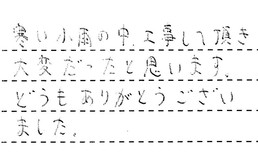 寒い小雨の中、工事して頂き
大変だったと思います。
どうもありがとうござい
ました。